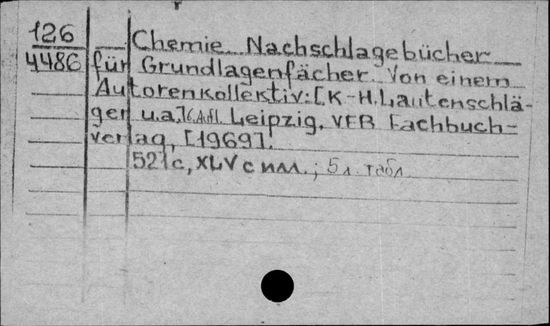 126
4486
Chemie. Nachschlagebücher
für Grundlagenfächer. Von einem
Autorenkollektiv: [K-H. Lautenschlä-
ger u.a.] 6. Aufl. Leipzig, VEB Fachbuch-
verlag, [1969].
521 с, XLV с илл.; 5 л. табл